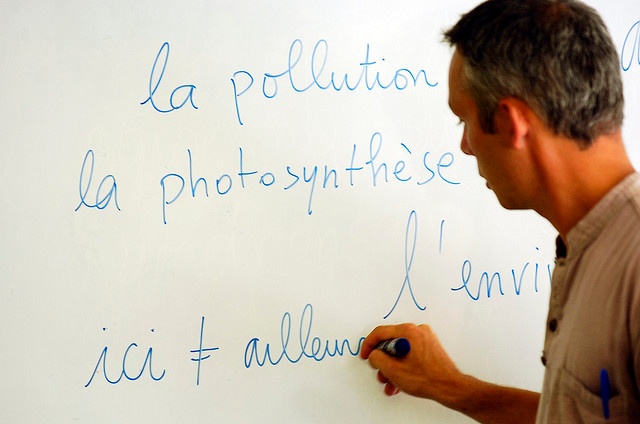 la pollution
la photosynthèse
l'envi
ici ≠ ailleurs